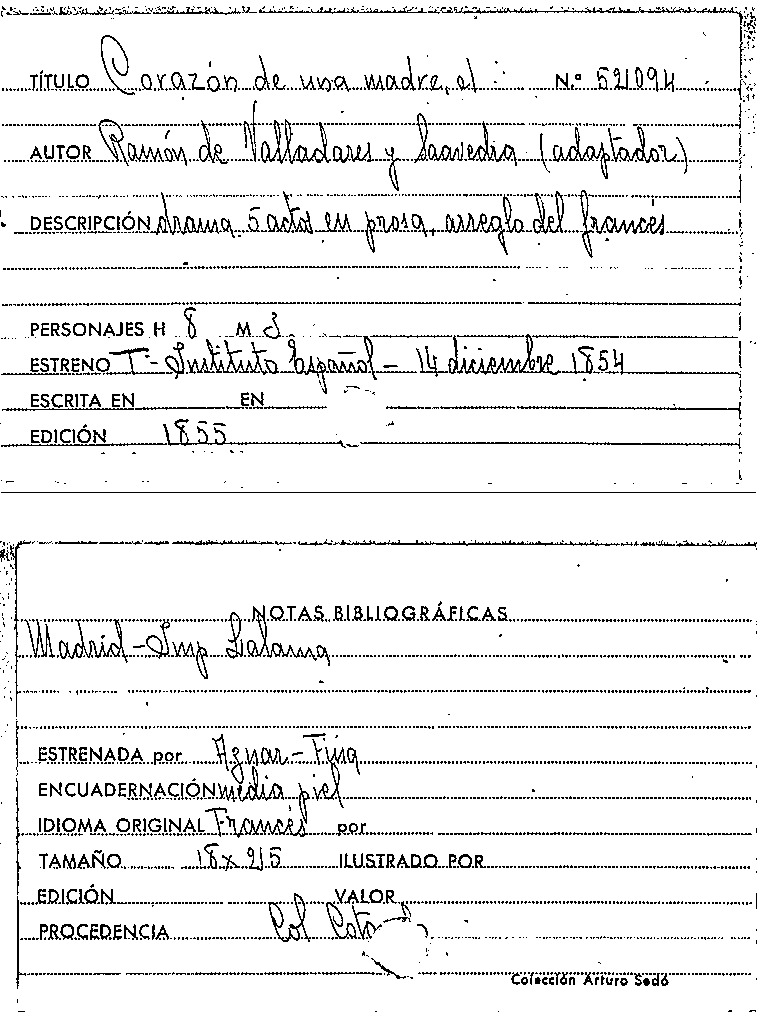 TÍTULO Corazón de una madre, el N.º 521094
AUTOR Ramón de Valladares y Saavedra (adaptador)
DESCRIPCIÓN drama 5 actos en prosa, arreglo del francés
PERSONAJES H 8 M 3
ESTRENO Tº- Instituto Español - 14 diciembre 1854
ESCRITA EN EN
EDICIÓN 1855
NOTAS BIBLIOGRÁFICAS
Madrid - Imp Lalama
ESTRENADA por Aznar -
ENCUADERNACIÓN media piel
IDIOMA ORIGINAL Francés por
TAMAÑO 18 x ILUSTRADO POR
EDICIÓN VALOR
PROCEDENCIA Col
Colección Arturo Sedó